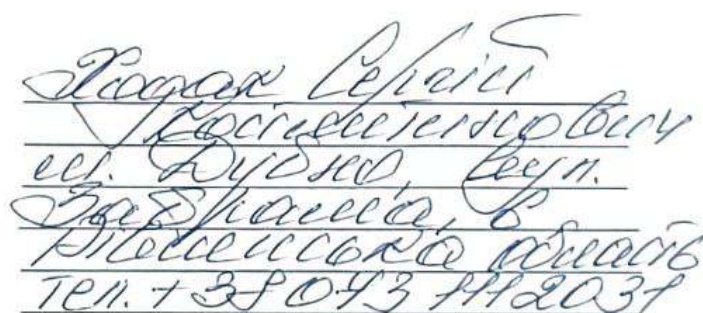 Ходак Сергій
Костянтинович
м. Дубно, вул.
Забрама, 6
Рівненська область
тел. +38 073 1112031